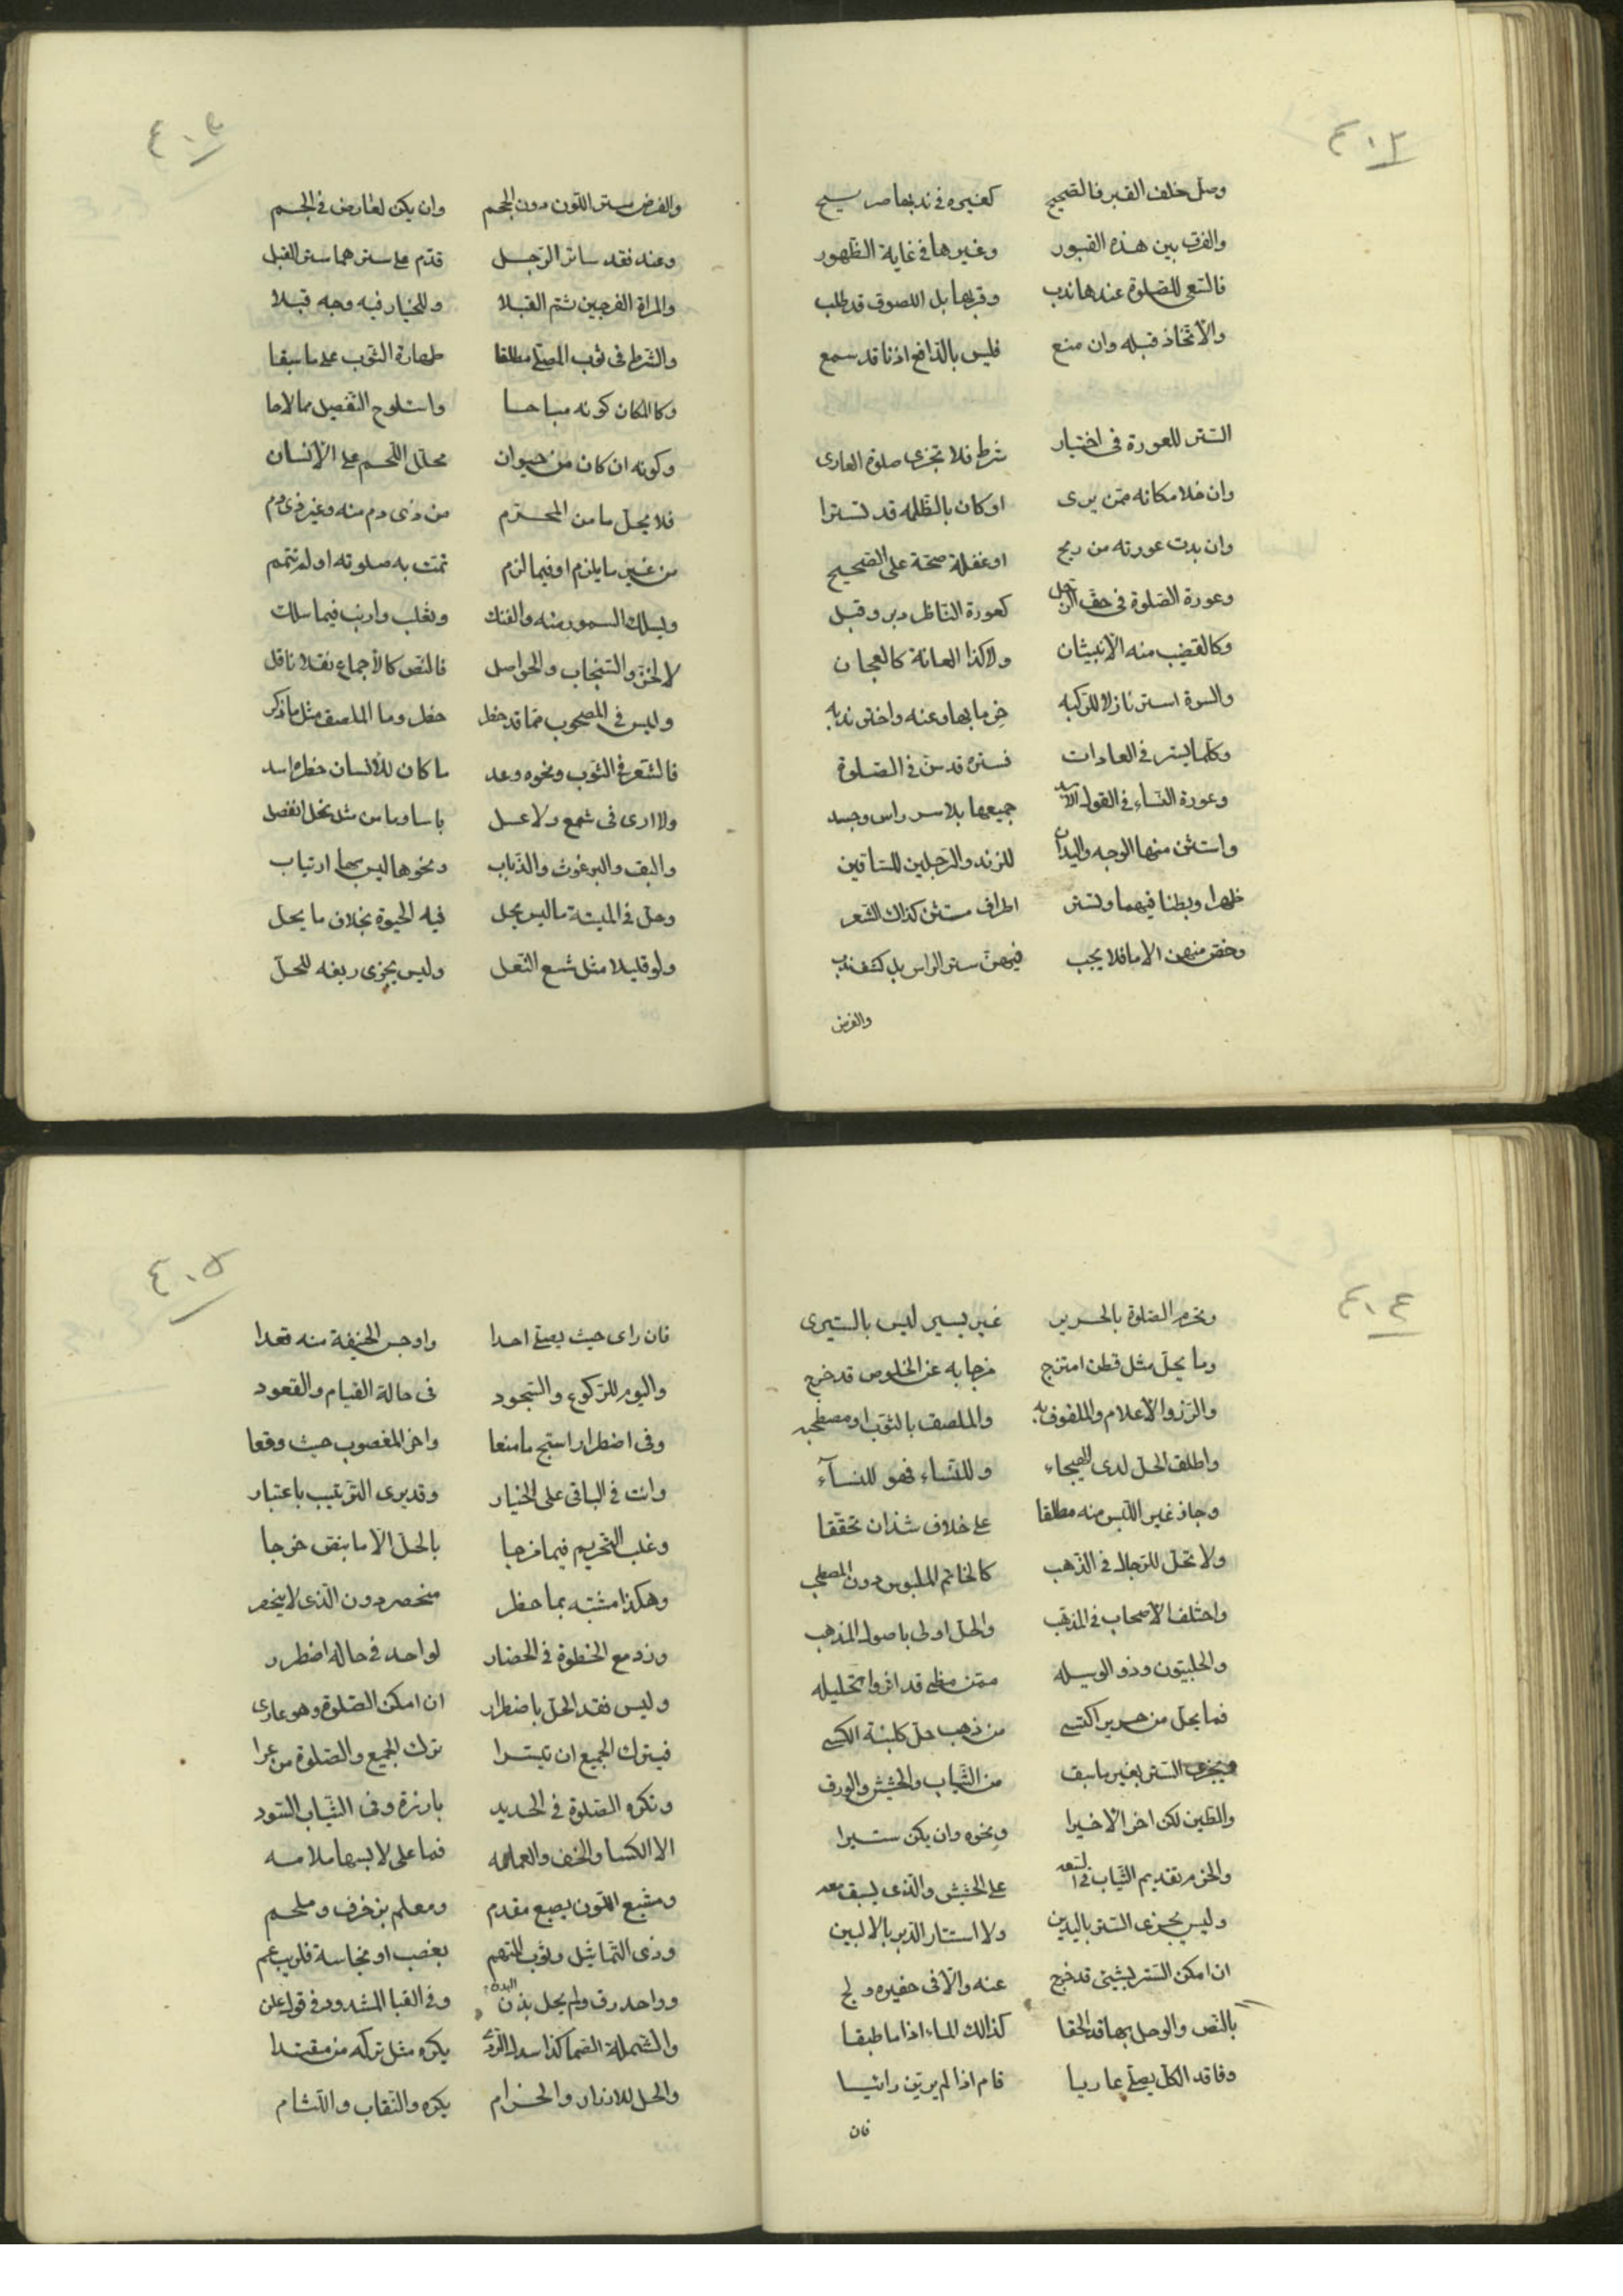 ٤٠٢
وصل خلف القبر فالصحيح كغيره في ندبها صريح
والفرق بين هذه القبور وغيرها في غاية الظهور
فالسعي للصلوة عندها ندب وقربها بل اللصوق قد طلب
والاتخاذ قبله وان منع فليس بالدافع اذنا قد سمع
الستر للعورة في اختيار شرط فلا تجزى صلوة العارى
وان خلا مكانه ممن يرى او كان بالظلمه قد تسترا
وان بدت عورته من ريح او غفلة صحة على الصحيح
وعورة الصلوة في حق الرجل كعورة الناظر دبر وقبل
وكالقضيب منه الانثيان ولا كذا العانة كالعجان
والسرة استر نازلا للركبه خر ما بها وعنه واختر ندبه
وكلما يستر في العادات فستره قد سن في الصلوة
وعورة النساء في القول الاسد جميعها بلا سر راس وجسد
واستثن منها الوجه واليدان للزند والرجلين للساقين
ظهرا وبطنا فيهما وتستر اطراف مستثن كذاك الشعر
وخص منهن الاما فلا يجب فيهن ستر الراس بل كشف ندب
والفرض
٤٠٣
والفرض ستر اللون دون الحجم وان يكن لعارض في الجسم
وعند فقد ساتر الرجل قدم على سترهما ستر القبل
والمراة الفرجين ثم القبلا وللخيار فيه وجه قبلا
والشرط في ثوب المصلي مطلقا طهارة الثوب على ما سبقا
وكالمكان كونه مباحا واستلوح التفصيل مما لاحا
وكونه ان كان من حيوان محلل اللحم على الانسان
فلا يحل ما من المحرم من ذى دم منه وغير ذى دم
من غير ما يلزم او فيما لزم تمت به صلوته او لم تتم
ويسلك السمور منه والفنك وثعلب وارنب فيما سلك
لا الخز والسنجاب والحواصل فالنص كالاجماع نقلا ناقل
وليس في المصحوب مما قد حظر حظر وما الملصق مثل ما ذكر
فالشعر في الثوب ونحوه وعد ما كان للانسان حظره اسد
ولا ارى في شمع ولا عسل باسا وما من مثل نحل انفصل
والبق والبرغوث والذباب ونحوها ليس بها ارتياب
وحل في الميتة ما ليس يحل فيه الحيوة بخلاف ما يحل
ولو قليلا مثل شسع النعل وليس يجزى ربغه للحل
٤٠٤
وتحرم الصلوة بالحرير غير يسير ليس بالستيرى
وما يحل مثل قطن امتزج مزجا به عن الخلوص قد خرج
والزر والاعلام والملفوف به والملصق بالثوب او مصطحبه
واطلق الحل لدى الهيجاء وللنساء فهو للنسآء
وجاز غير اللبس منه مطلقا على خلاف شذ ان تحققا
ولا تحل للرجال في الذهب كالخاتم الملبوس دون المصطحب
واختلف الاصحاب في المذهب والحل اولى باصول المذهب
والحلبيتون وذو الوسيله ممن مظى قد اثروا تحليله
فما يحل من حرير اكتسى من ذهب حل كلبنة الكسى
ويجزى الستر بغير ما سبق من الثياب والحشيش والورق
والطين لكن اخر الاخيرا ونحوه وان يكن ستيرا
والحزم تقديم الثياب في السعه على الحشيش والذى يسبق معه
وليس يجزى الستر باليدين ولا استتار الدبر بالاليين
ان امكن الستر بشيئ قد خرج عنه والا في حفيره ولج
بالنص والوحل بها قد الحقا كذالك الماء اذا ما طبقا
وفاقد الكل يصلي عاريا قام اذا لم يرين رائيا
فان
٤٠٥
فان راى حيث يصلي احدا واوجس الخيفة منه قعدا
واليوم للركوع والسجود في حالة القيام والقعود
وفي اضطرار استبح ما منعا واخر المغصوب حيث وقعا
وانت في الباقى على الخيار وقد يرى الترتيب باعتبار
وغلب التحريم فيما مزجا بالحل الا ما بنقص خرجا
وهكذا مشتبه بما حظر منحصر دون الذى لا ينحصر
وزد مع الخطوة في الحضار لواحد في حالة اضطرار
وليس فقد الحل باضطرار ان امكن الصلوة وهو عارى
فيترك الجميع ان تيسرا ترك الجميع والصلوة من عرا
وتكره الصلوة في الحديد بارزة وفي الثياب السود
الا الكسا والخف والعمامه فما على لابسها ملامه
ومشبع اللون بصبغ مقدم ومعلم بزخرف وملحم
وذى التماثيل وثوب المتهم بغصب او نجاسة فلم يعم
وواحد رق ولم يحل بذن البدن وفي القبا المشدود في قول علن
والشملة الصما كذا سدل الردى يكره مثل تركه من مقتدا
والحل للازرار والحزام يكره والنقاب واللثام